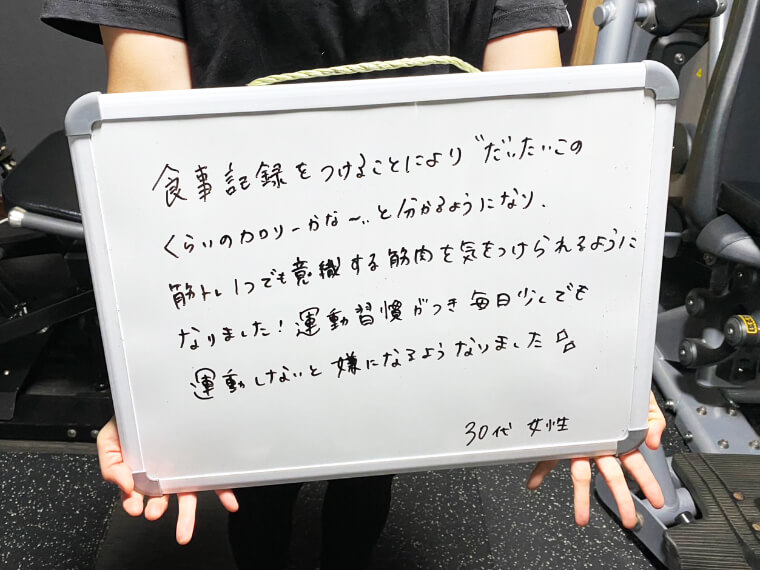 食事記録をつけることにより“だいたいこの
くらいのカロリーかな〜”と分かるようになり、
筋トレ1つでも意識する筋肉を気をつけられるように
なりました！運動習慣がつき毎日少しでも
運動しないと嫌になるようなりました
30代 女性